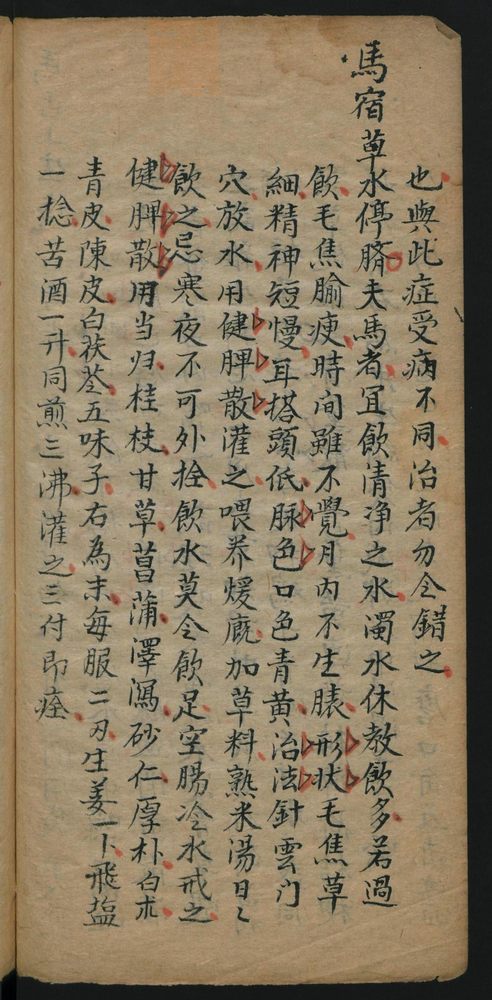 也與此症受病不同治者勿令錯之
馬宿草水停臍夫馬者宜飲清净之水濁水休教飲多若過
飲毛焦腧㾺時间雖不覺月内不生膘形狀毛焦草
細精神短慢耳搭頭低脉色口色青黄治法針雲门
穴放水用健脾散灌之喂养煖廐加草料熟米湯日〻
飲之忌寒夜不可外拴飲水莫令飲足空腸冷水戒之
健脾散用当归桂枝甘草菖蒲澤瀉砂仁厚朴白朮
青皮陳皮白茯苓五味子右為末每服二刃生姜一卜飛盐
一捻苦酒一升同煎三沸灌之三付即痊